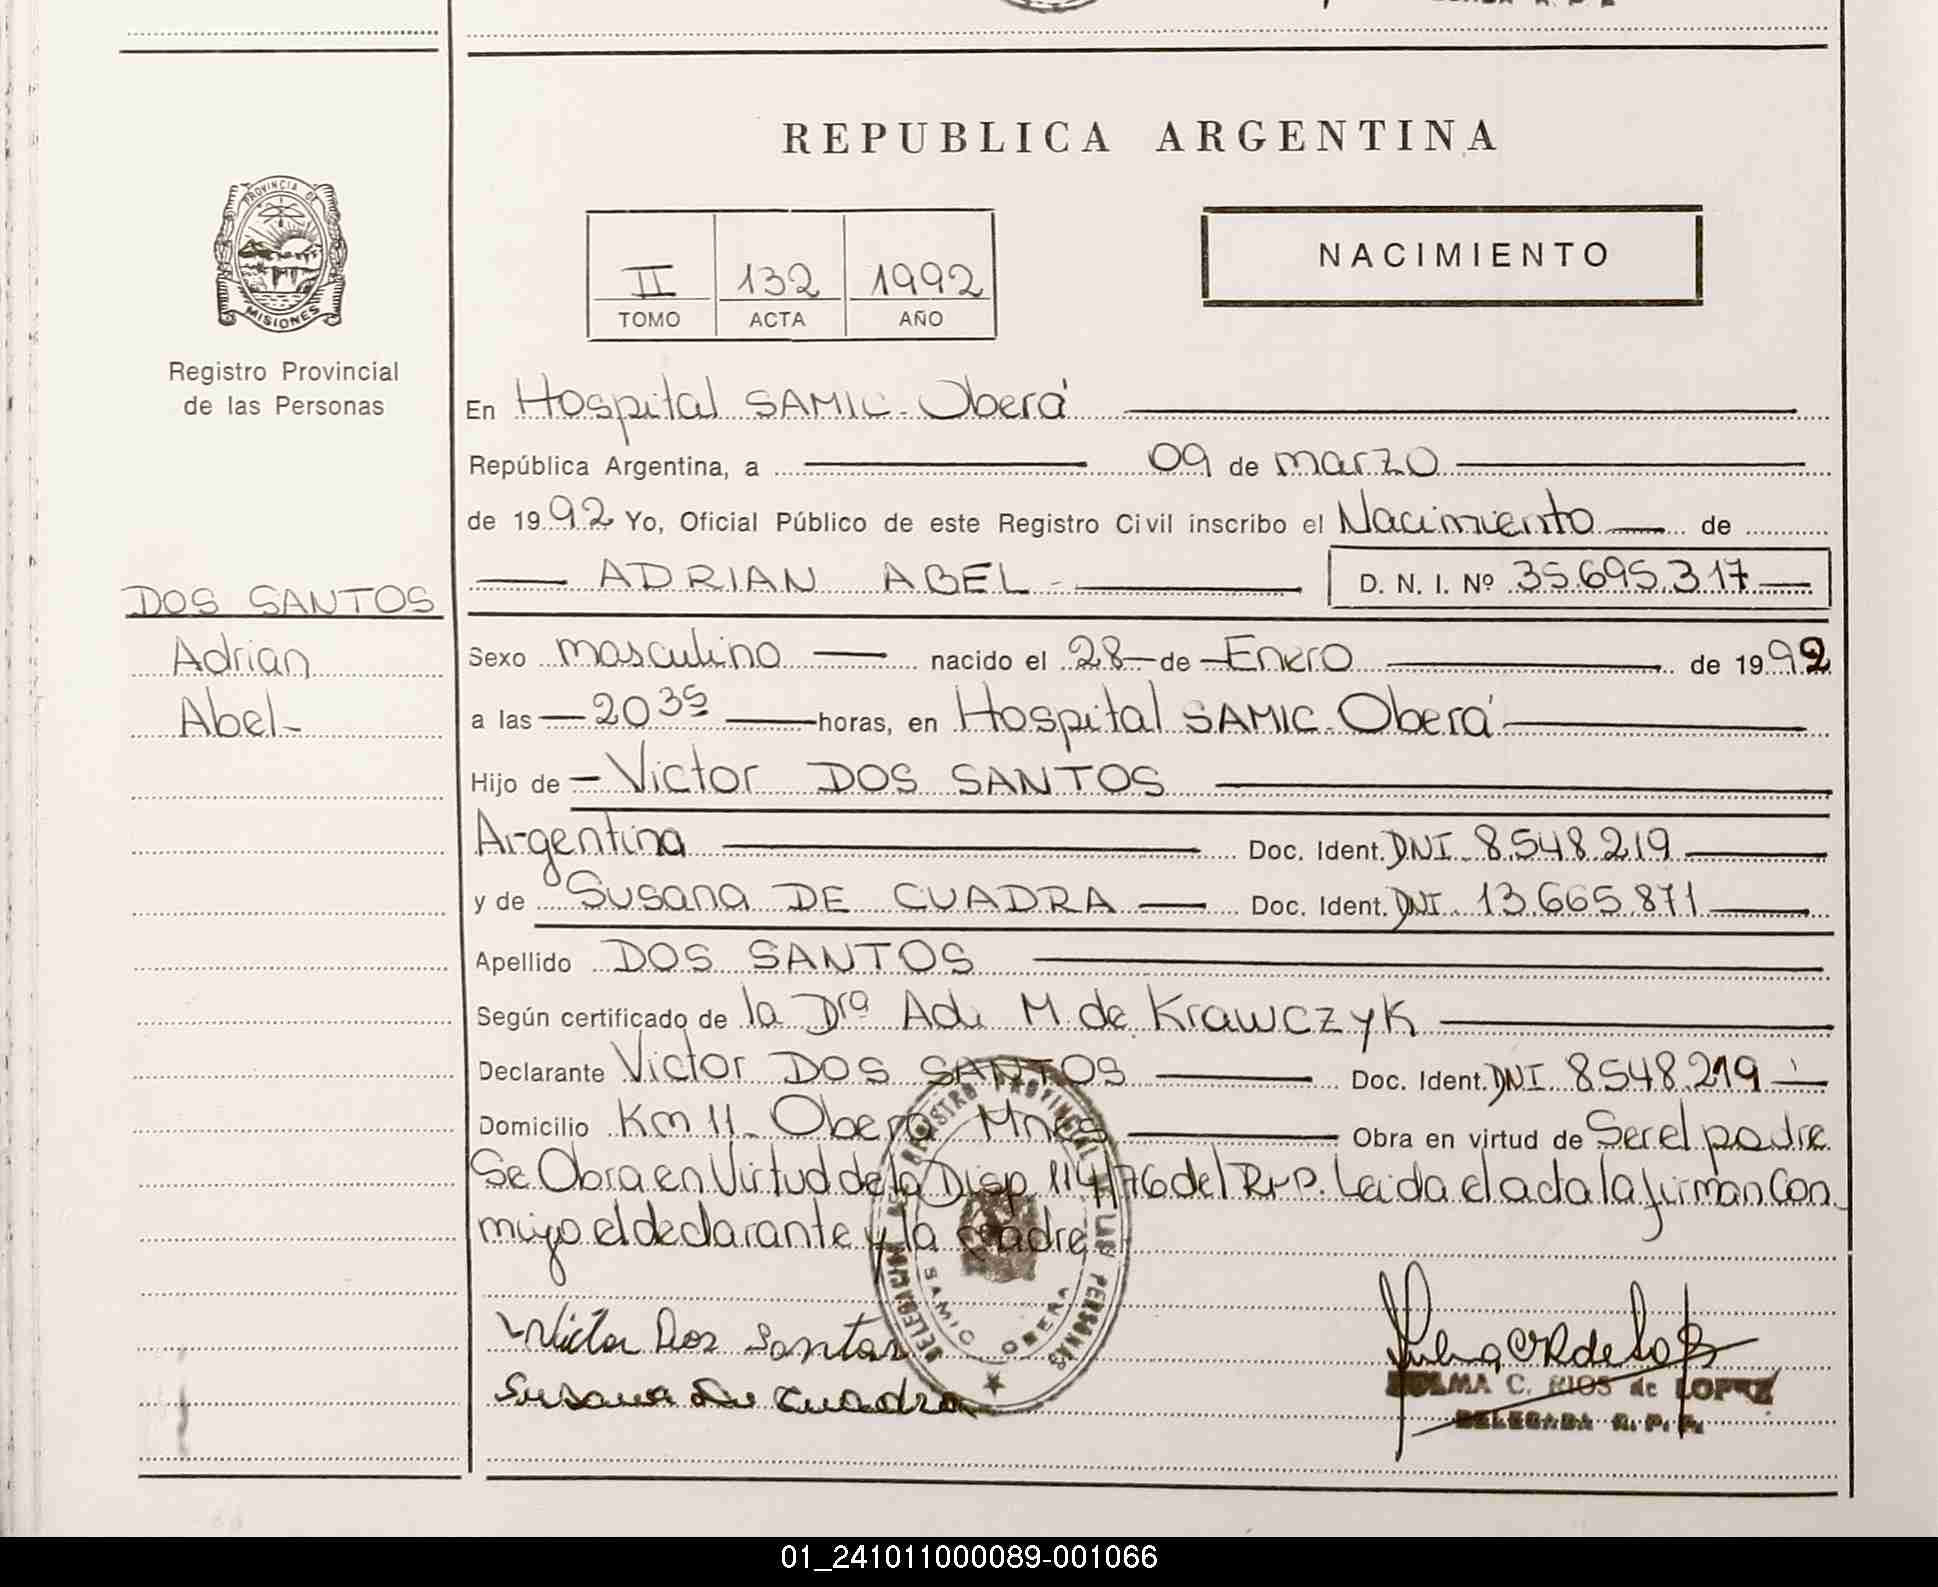 REPUBLICA ARGENTINA
PROVINCIA DE
MISIONES
Registro Provincial
de las Personas
II 132 1992
TOMO ACTA AÑO
NACIMIENTO
En Hospital SAMIC - Oberá
República Argentina, a 09 de marzo
de 1992 Yo, Oficial Público de este Registro Civil inscribo el Nacimiento de
ADRIAN ABEL - D. N. I. Nº 35.695.317
DOS SANTOS
Adrian
Abel-
Sexo masculino nacido el 28 de Enero de 1992
a las 20 35 horas, en Hospital SAMIC - Oberá
Hijo de Victor DOS SANTOS
Argentina Doc. Ident. DNI 8.548.219
y de Susana DE CUADRA Doc. Ident. DNI 13.665.871
Apellido DOS SANTOS
Según certificado de la Dra M. de Krawczyk
Declarante Victor DOS SANTOS Doc. Ident. DNI 8548.219
Domicilio Km 11 - Oberá Mnes Obra en virtud de Ser el padre
Se Obra en Virtud de la Disp 114/76 del R.P.P. Leida el acta la firman Con
migo el declarante y la madre
DELEGACION DEL REGISTRO PROVINCIAL DE LAS PERSONAS
SAMIC OBERA
Victor Dos Santos
Susana De Cuadra
C. RIOS de LOPEZ
DELEGADA R. P. P.
01_241011000089-001066